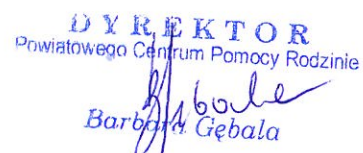 DYREKTOR
Powiatowego Centrum Pomocy Rodzinie
Barbara Gębala